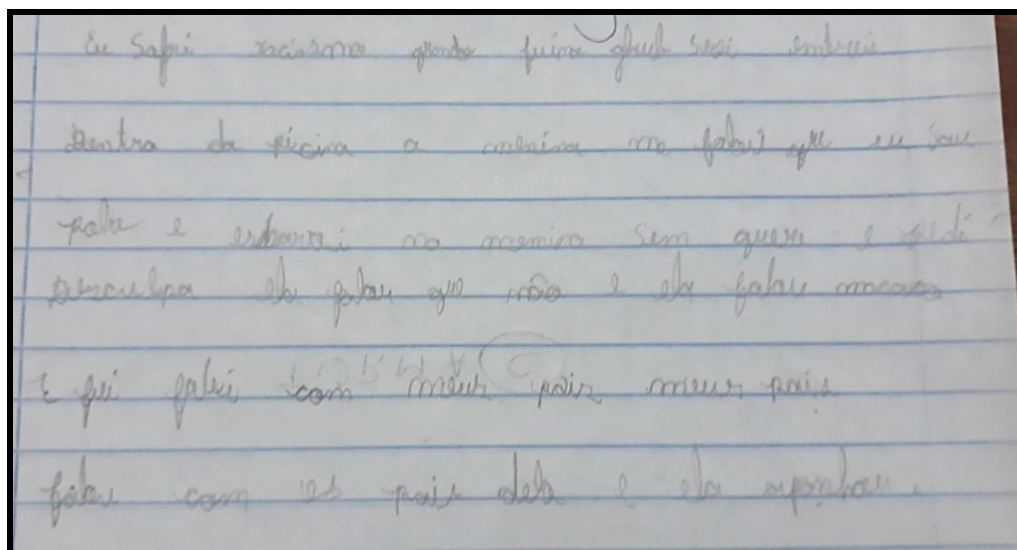 Eu Sofri racismo quando fuina glub sesi entrei
Dentra da picina a menina me falou que eu sou
pobre e esbarrei na menina sem queri e pedi
Desculpa ela falou que não e ela falou
E fui falei com meus pais meus pais
falou com os pais dela e ela aponhou.